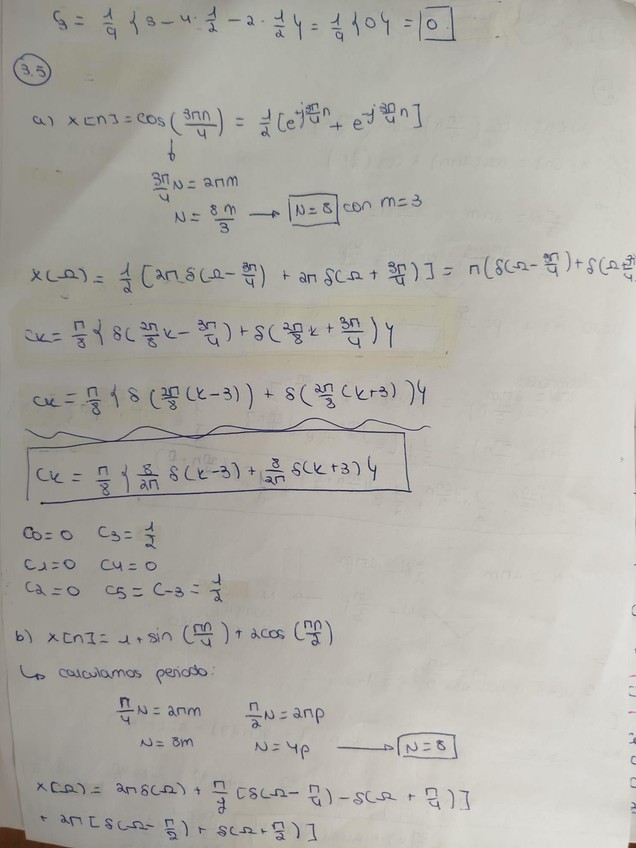 C3 = 1/4 { 3 - 4 · 1/2 - 2 · 1/2 } = 1/4 { 0 } = 0.
3.5
a) x[n] = cos(3πn/4) = 1/2 [e^{j3π/4 n} + e^{-j3π/4 n}]
3π/4 N = 2πm
N = 8m/3 → N=8 con m=3
X(Ω) = 1/2 [2π δ(Ω - 3π/4) + 2π δ(Ω + 3π/4)] = π(δ(Ω - 3π/4) + δ(Ω + 3π/4
Ck = π/8 { δ(2π/8 k - 3π/4) + δ(2π/8 k + 3π/4) }
Ck = π/8 { δ(2π/8 (k-3)) + δ(2π/8 (k+3)) }
Ck = π/8 { 8/2π δ(k-3) + 8/2π δ(k+3) }
C0=0 C3 = 1/2
C1=0 C4=0
C2=0 C5 = C-3 = 1/2
b) x[n] = 1 + sin(πn/4) + 2cos(πn/2)
↳ calculamos periodo:
π/4 N = 2πm π/2 N = 2πp
N = 8m N = 4p → N=8
X(Ω) = 2πδ(Ω) + π/j [δ(Ω - π/4) - δ(Ω + π/4)]
+ 2π [δ(Ω - π/2) + δ(Ω + π/2)]